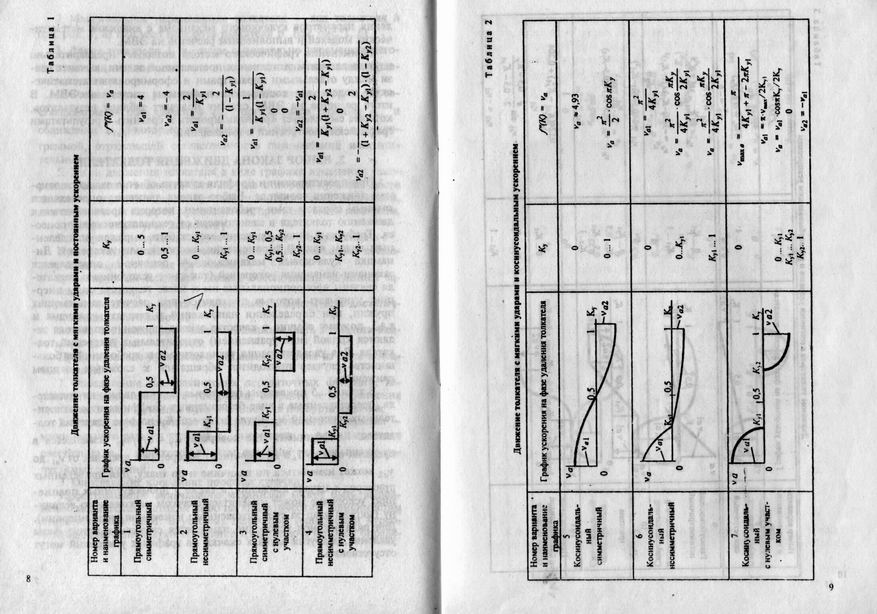 Таблица 1
Движение толкателя с мягкими ударами и постоянным ускорением
Номер варианта
и наименование
графика
График ускорения на фазе удаления толкателя
Kᵧ
f''(K) = vₐ
1
Прямоугольный
симметричный
va
va1
0
0,5
va2
1
Kᵧ
0 ... 5
0,5 ... 1
va1 = 4
va2 = −4
2
Прямоугольный
несимметричный
va
va1
0
0,5
va2
1
Kᵧ
0 ... Kᵧ₁
Kᵧ₁ ... 1
va1 = 2 / Kᵧ₁
va2 = − 2 / (1 − Kᵧ₁)
3
Прямоугольный
симметричный
с нулевым
участком
va
va1
0
Kᵧ₁
0,5
Kᵧ₂
va2
1
Kᵧ
0 ... Kᵧ₁
Kᵧ₁.. 0,5
0,5... Kᵧ₂
Kᵧ₂.. 1
va1 = 1 / Kᵧ₁(1 − Kᵧ₁)
0
0
va2 = −va1
4
Прямоугольный
несимметричный
с нулевым
участком
va
va1
0
Kᵧ₁
Kᵧ₂
0,5
va2
1
Kᵧ
0 ... Kᵧ₁
Kᵧ₁.. Kᵧ₂
Kᵧ₂.. 1
va1 = 2 / Kᵧ₁(1 + Kᵧ₂ − Kᵧ₁)
0
va2 = − 2 / (1 + Kᵧ₂ − Kᵧ₁)·(1 − Kᵧ₂)
8
Таблица 2
Движение толкателя с мягкими ударами и косинусоидальным ускорением
Номер варианта
и наименование
графика
График ускорения на фазе удаления толкателя
Kᵧ
f''(K) = vₐ
5
Косинусоидаль-
ный
симметричный
va
va1
0
0,5
1
Kᵧ
va2
0
0 ... 1
vₐ = 4,93
vₐ = π² / 2 · cos πKᵧ
6
Косинусоидаль-
ный
несимметричный
va
va1
0
Kᵧ₁
0,5
1
Kᵧ
va2
0
0...Kᵧ₁
Kᵧ₁ ... 1
7
Косинусоидаль-
ный
с нулевым участ-
ком
va
va1
0
Kᵧ₁
0,5
Kᵧ₂
1
Kᵧ
va2
0
0 ... Kᵧ₁
Kᵧ₁ ... Kᵧ₂
Kᵧ₂ ... 1
0
va2 = −va1
9